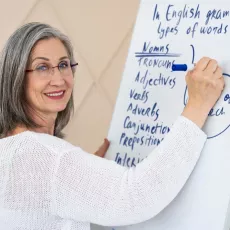 In English gram
types of words
Nouns
Pronouns
Adjectives
Verbs
Adverbs
Conjunction
Preposition
Inter